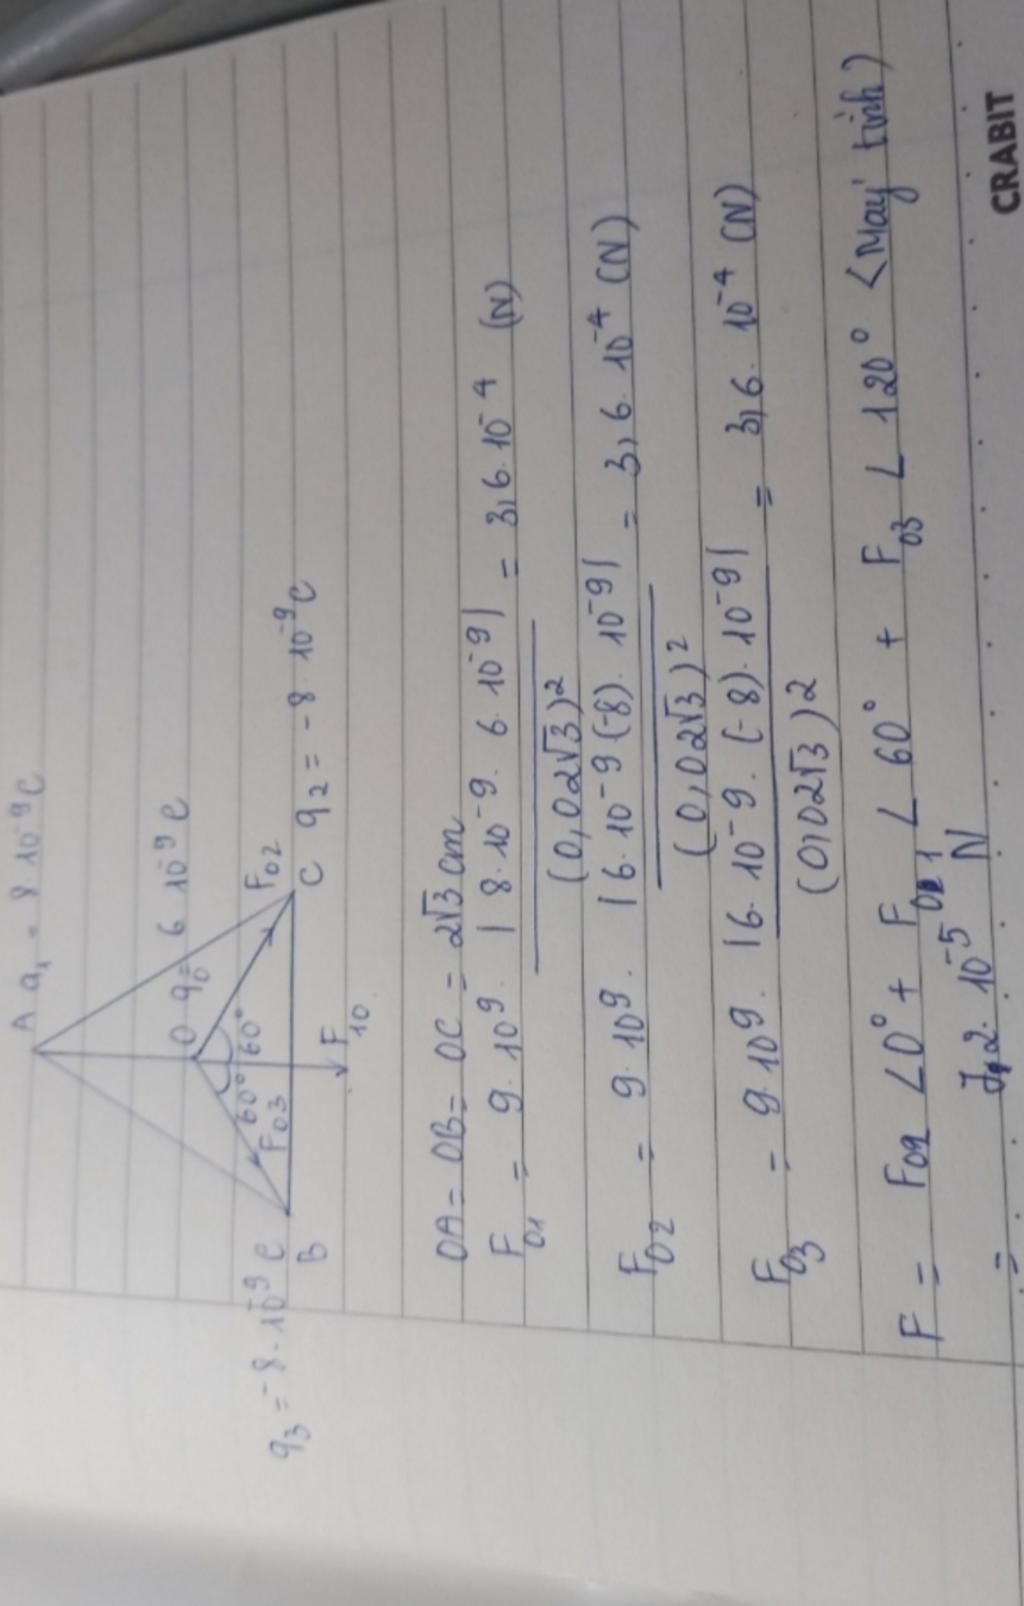 A q₁ = 8 10⁻⁹C
O q₀ = 6 10⁻⁹ C
60° 60°
F03 F02
q₃ = -8. 10⁻⁹ C B C q₂ = -8 10⁻⁹C
F10
OA = OB = OC = 2√3 cm
F01 = 9. 10⁹. |8.10⁻⁹. 6. 10⁻⁹| / (0,02√3)² = 3,6.10⁻⁴ (N)
F02 = 9.10⁹. |6.10⁻⁹(-8). 10⁻⁹| / (0,02√3)² = 3,6. 10⁻⁴ (N)
F03 = 9.10⁹. |6. 10⁻⁹. (-8). 10⁻⁹| / (0,02√3)² = 3,6. 10⁻⁴ (N)
F = ∠0° + ∠60° + F03 ∠120° <Máy tính)
= 2. 10⁻⁵ N
CRABIT